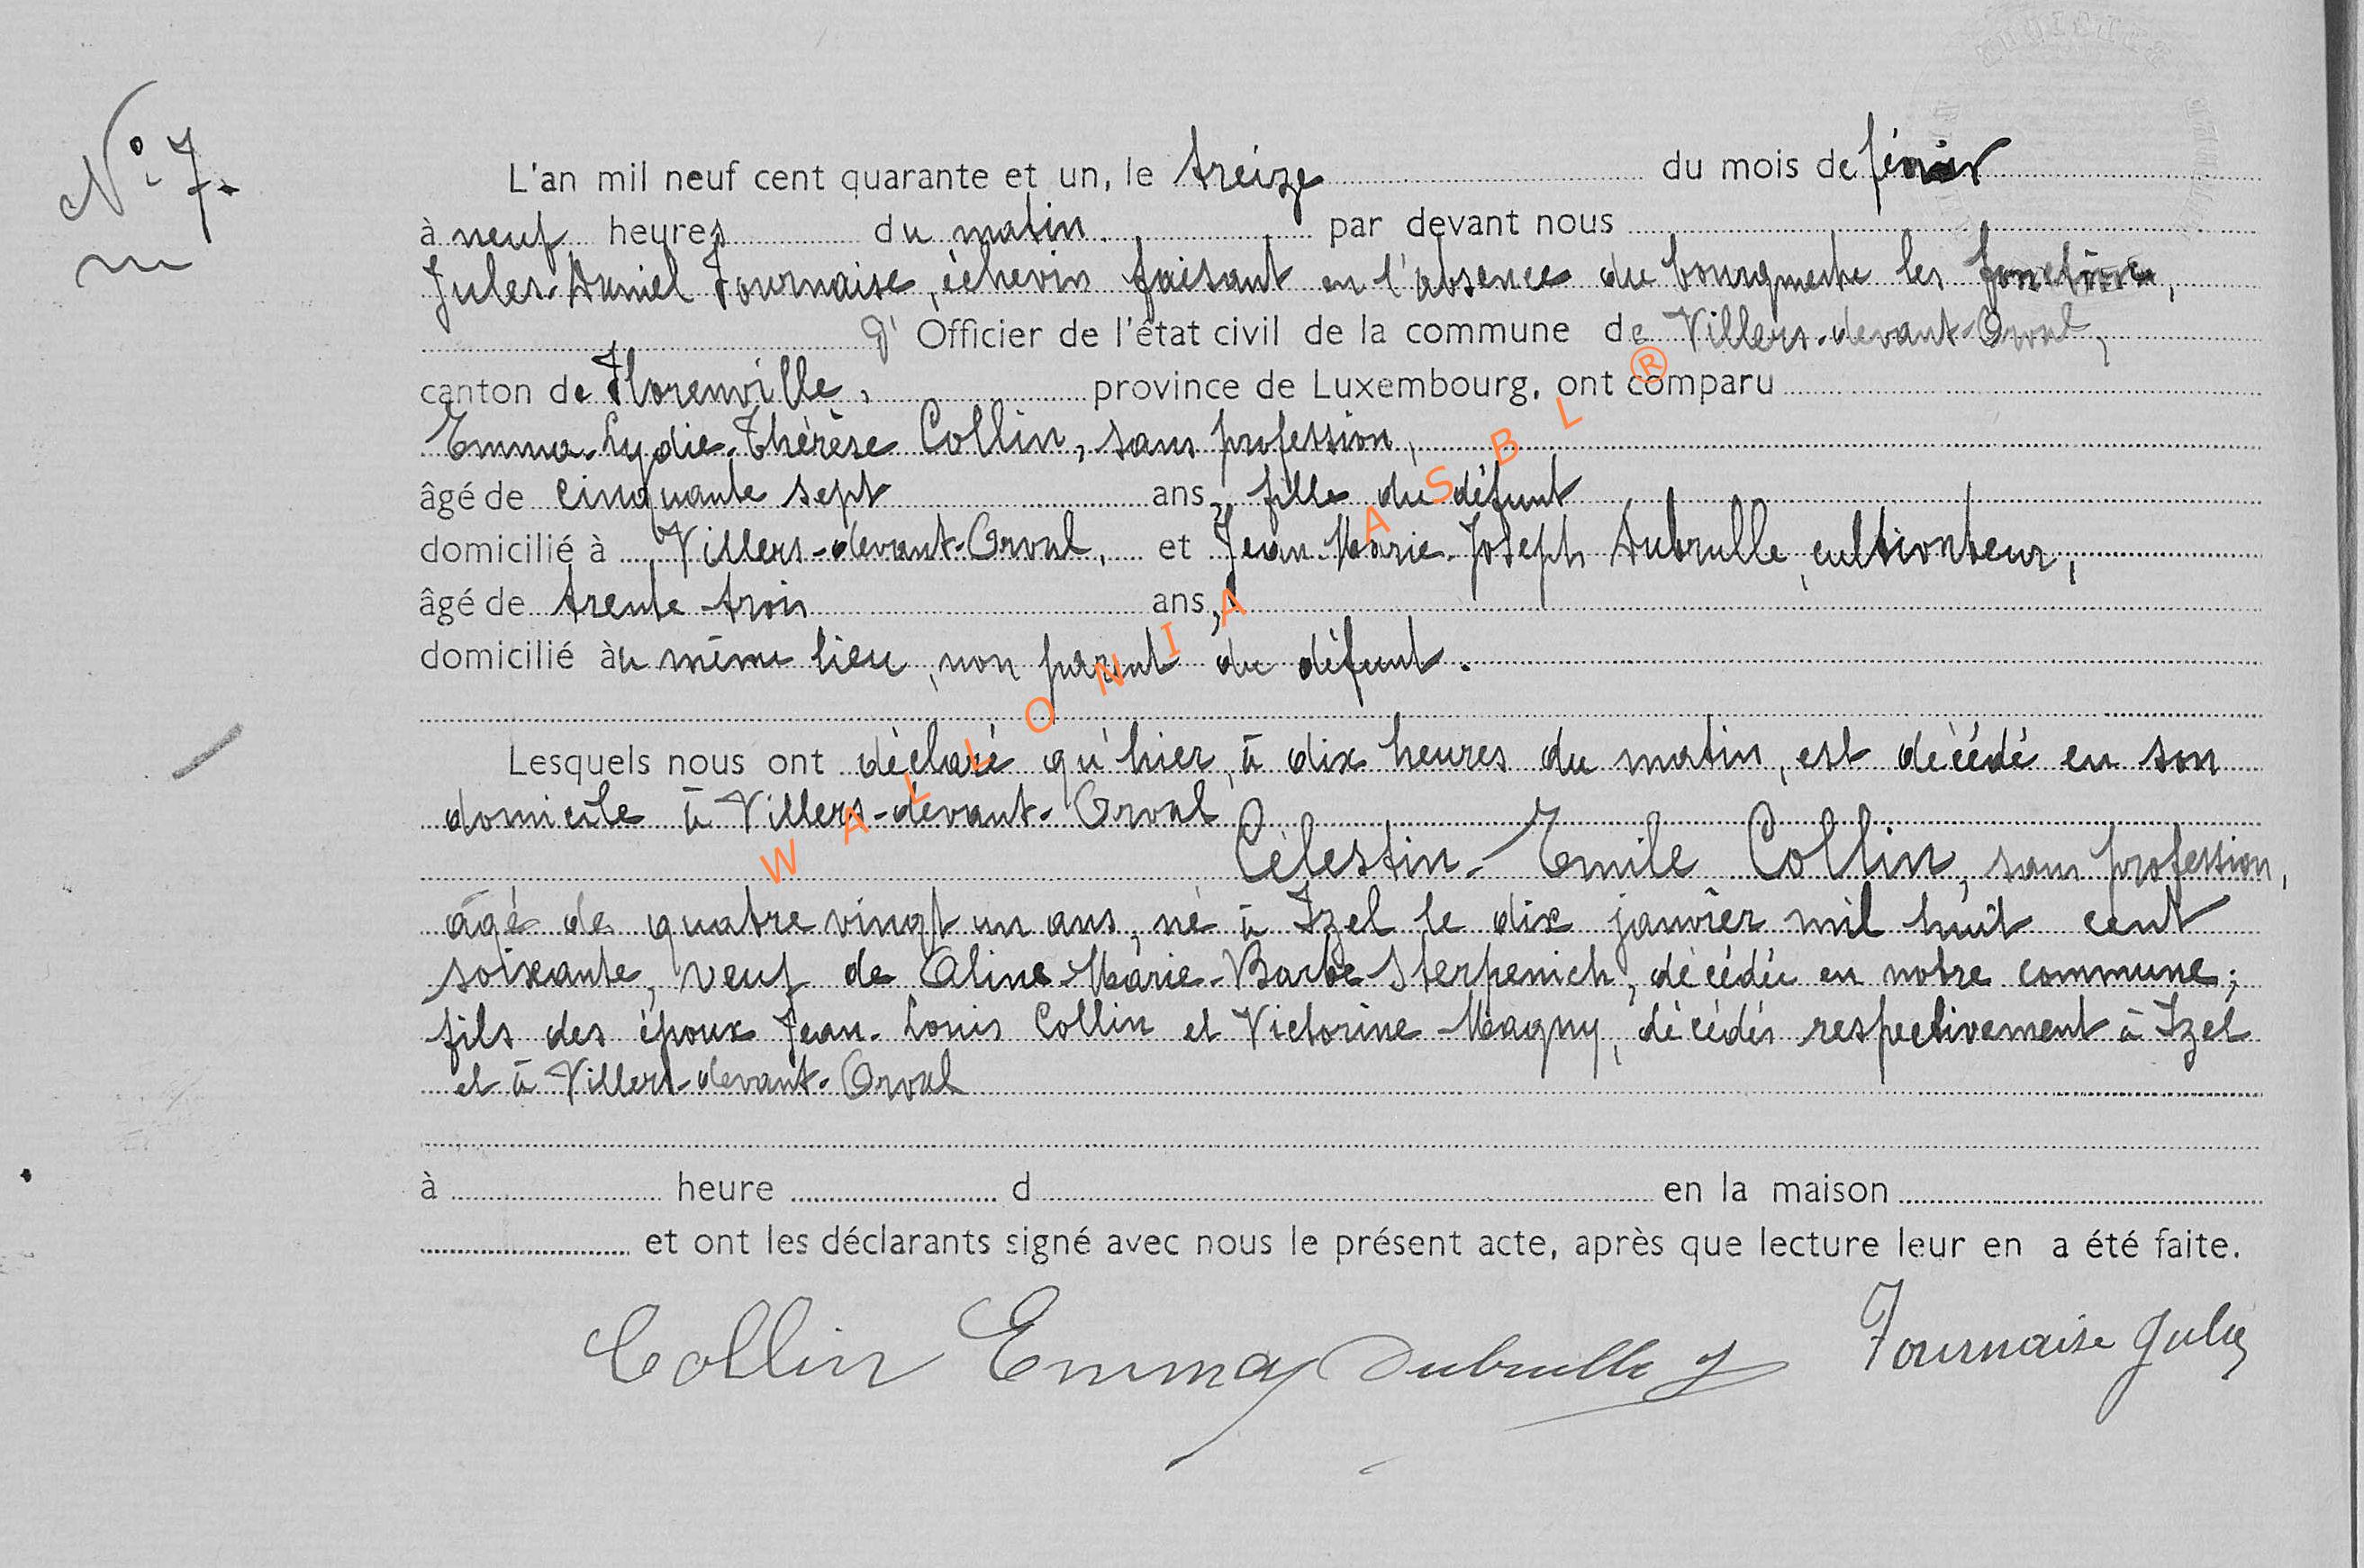 N° 7.
L'an mil neuf cent quarante et un, le treize du mois de février
à neuf heures du matin. par devant nous
Jules-Daniel Fournaise, échevin faisant en l'absence du bourgmestre les fonctions,
d'Officier de l'état civil de la commune de Villers-devant-Orval,
canton de Florenville, province de Luxembourg, ont comparu
Emma-Lydie-Thérèse Collin, sans profession,
âgé de cinquante sept ans, fille du défunt
domicilié à Villers-devant-Orval, et Jean-Marie-Joseph Dubrulle, cultivateur,
âgé de trente-trois ans,
domicilié àu même lieu, non parent du défunt.
Lesquels nous ont déclaré qu'hier, à dix heures du matin, est décédé en son
domicile à Villers-devant-Orval
Célestin-Emile Collin, sans profession,
âgé de quatre vingt un ans, né à Izel le dix janvier mil huit cent
soixante, veuf de Céline-Marie-Barbe Sterpenich, décédée en notre commune;
fils des époux Jean-Louis Collin et Victorine Magny, décédés respectivement à Izel
et à Villers-devant-Orval
à heure d en la maison
et ont les déclarants signé avec nous le présent acte, après que lecture leur en a été faite.
Collin Emma Dubrulle J Fournaise Jules
WALLONIA ASBL ®